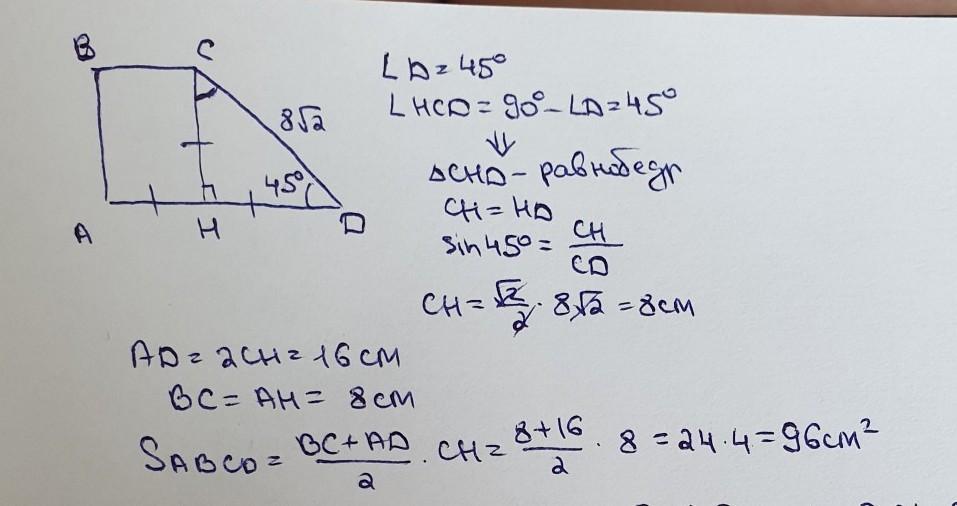 B C
8√2
45°
A H D
∠D = 45°
∠HCD = 90° - ∠D = 45°
⇓
△CHD - равнобедр
CH = HD
sin 45° = CH/CD
CH = √2/2 · 8√2 = 8см
AD = 2CH = 16 см
BC = AH = 8 см
SABCD = BC+AD/2 · CH = 8+16/2 · 8 = 24 · 4 = 96 см²